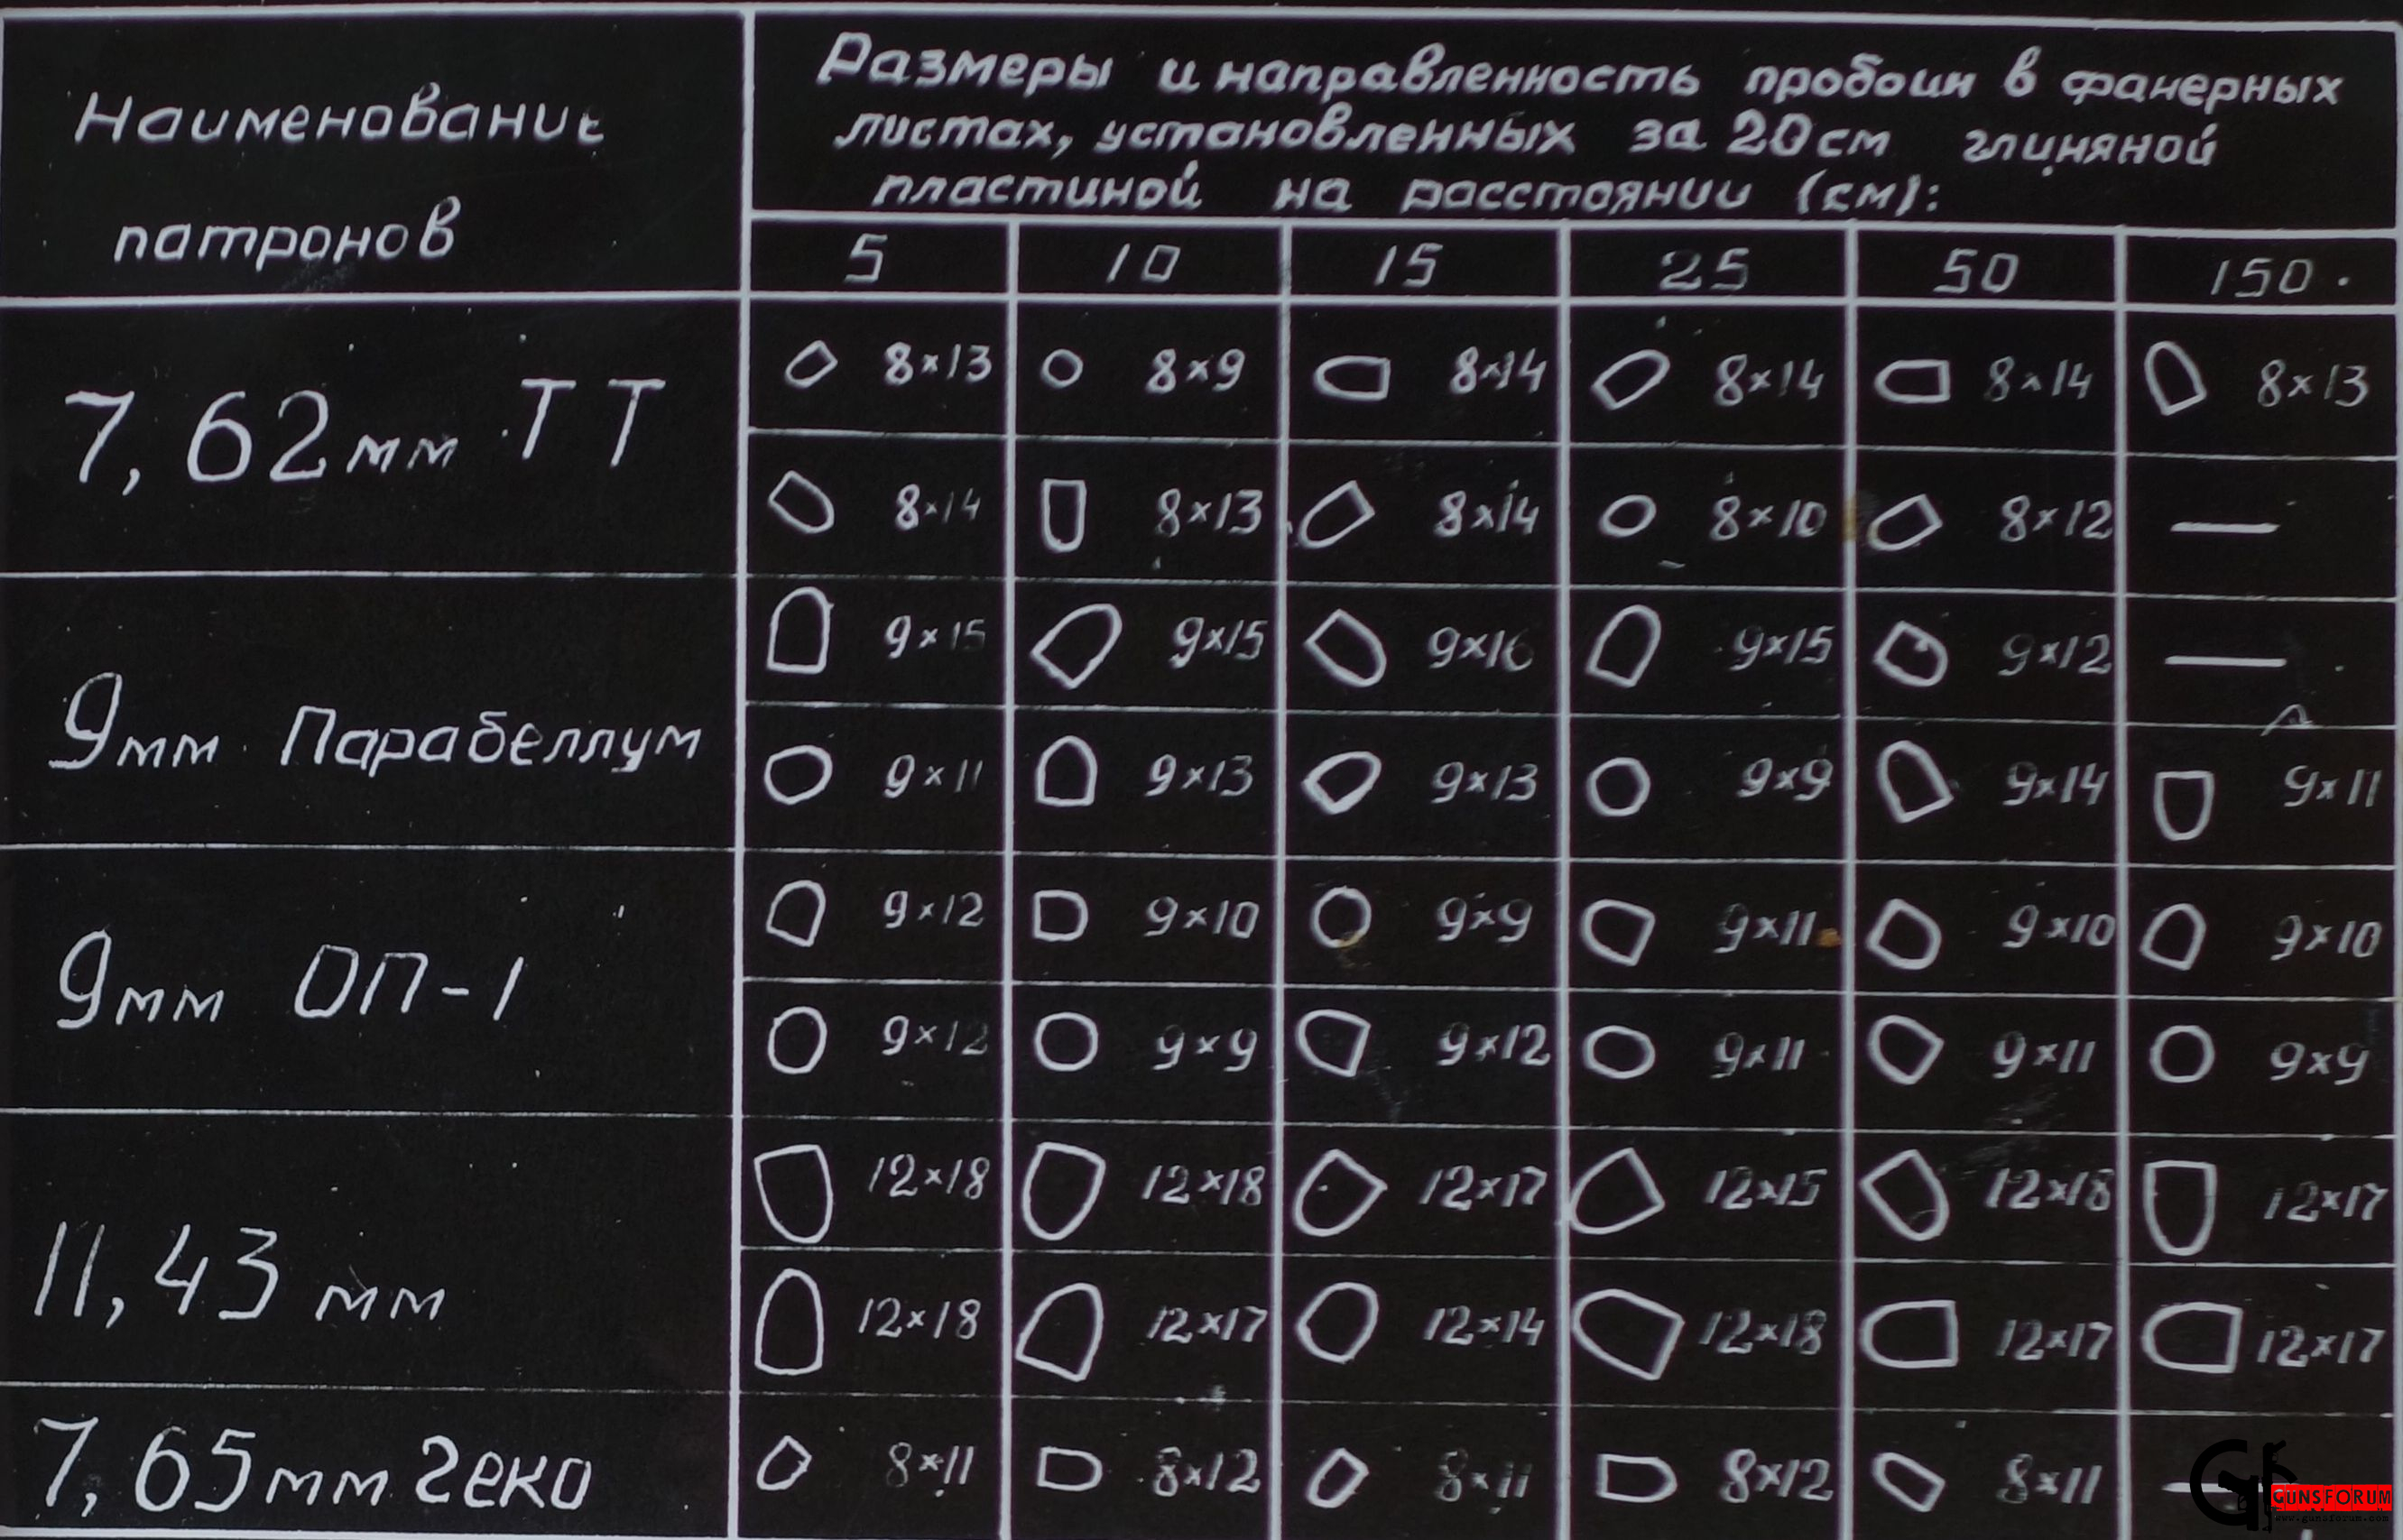 Наименование
патронов
Размеры и направленность пробоин в фанерных
листах, установленных за 20 см глиняной
пластиной на расстоянии (см):
5 10 15 25 50 150
7,62 мм ТТ
8×13 8×9 8×14 8×14 8×14 8×13
8×14 8×13 8×14 8×10 8×12 —
9мм Парабеллум
9×15 9×15 9×16 9×15 9×12 —
9×11 9×13 9×13 9×9 9×14 9×11
9мм ОП-1
9×12 9×10 9×9 9×11 9×10 9×10
9×12 9×9 9×12 9×11 9×11 9×9
11,43 мм
12×18 12×18 12×17 12×15 12×18 12×17
12×18 12×17 12×14 12×18 12×17 12×17
7,65мм Геко
8×11 8×12 8×11 8×12 8×11 —
GUNSFORUM
www.gunsforum.com